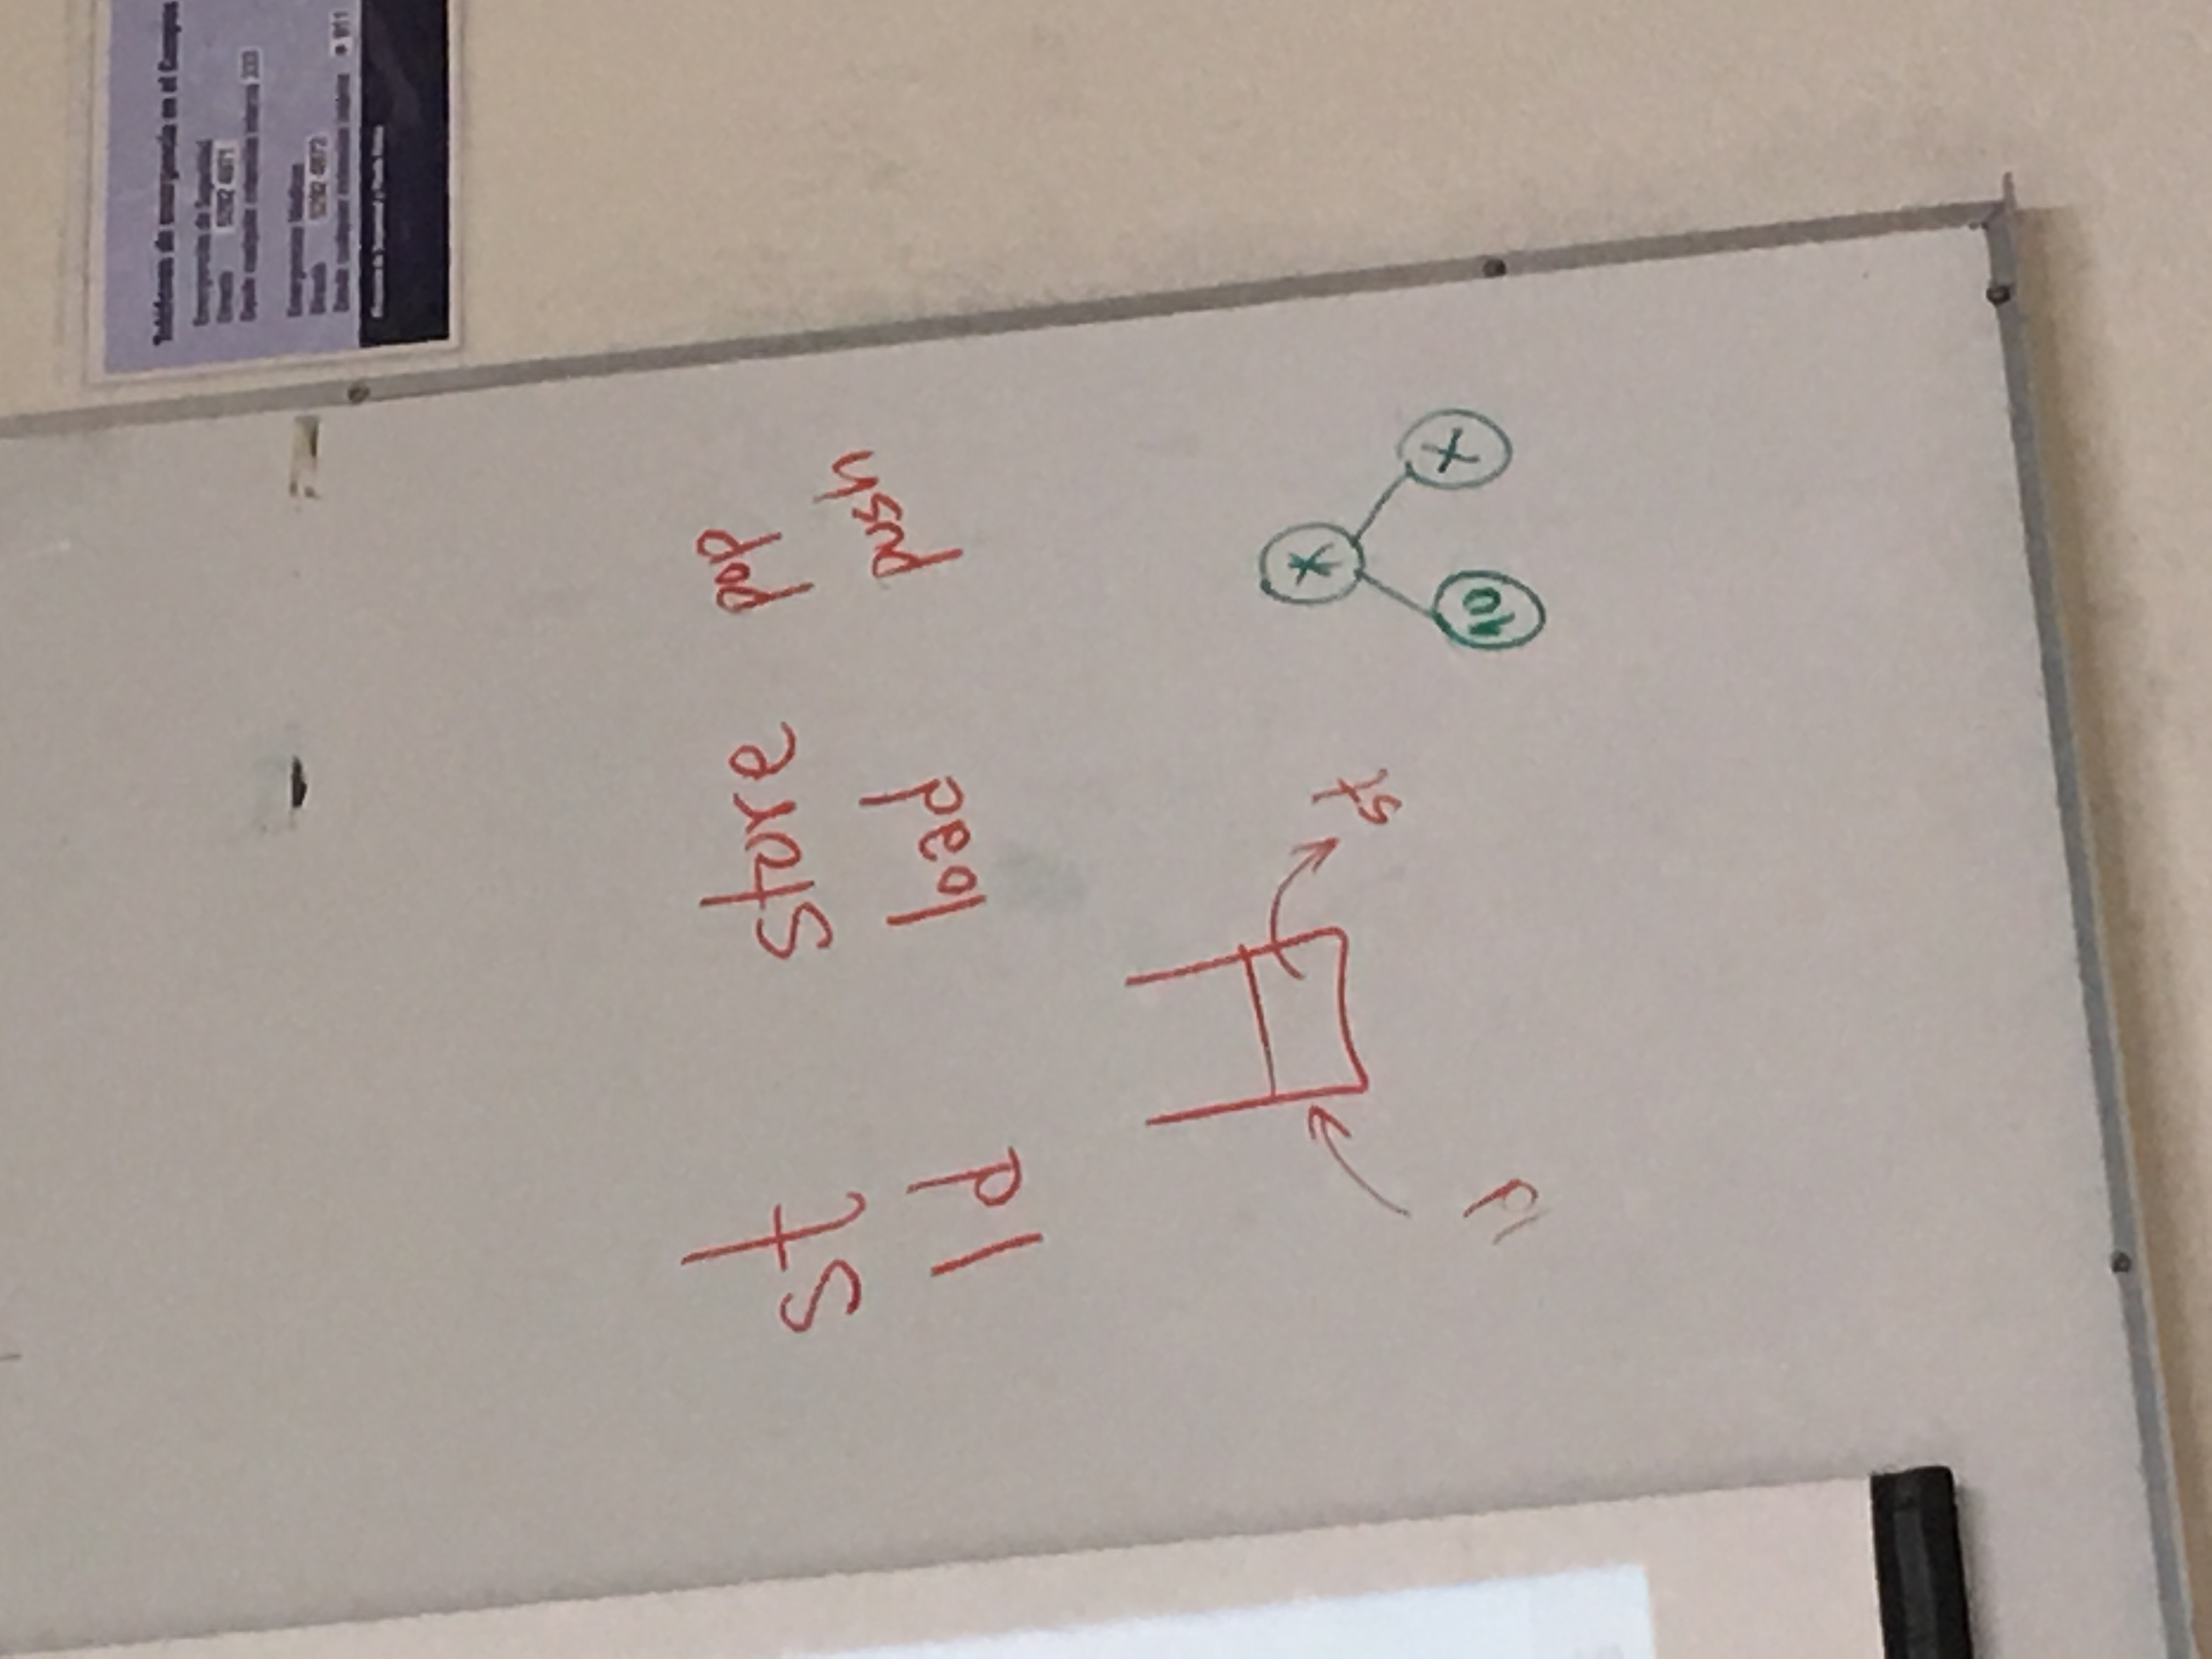 Teléfonos de emergencia en el Campus
Emergencias de Seguridad
Directo 5292 4871
Desde cualquier extensión interna 333
Emergencias Médicas
Directo 5292 4872
Desde cualquier extensión interna * 911
st store pop
ld load push
st
ld
*
10 x